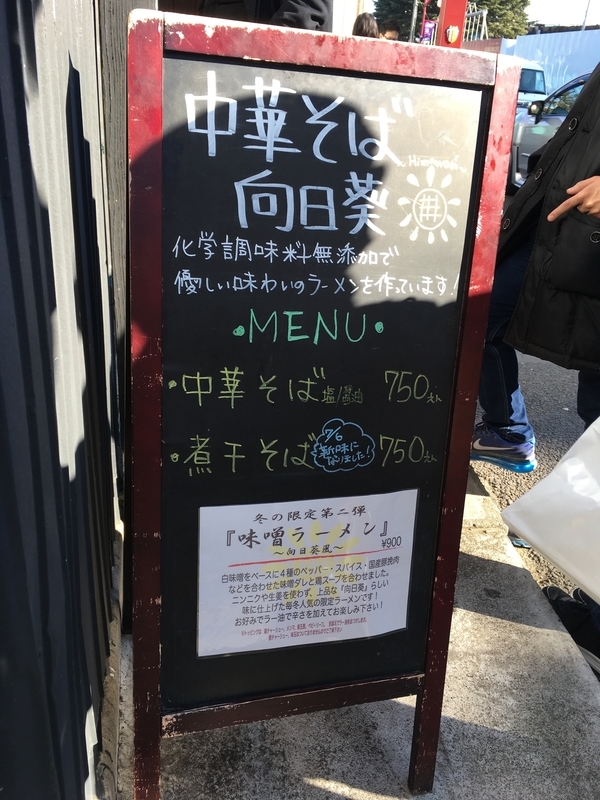 中華そば
Himawari
向日葵
化学調味料無添加で
優しい味わいのラーメンを作っています!
・MENU・
・中華そば 塩/醤油 750えん
・煮干そば 7/6 新味になりました! 750えん
冬の限定第二弾
『味噌ラーメン』
～向日葵風～
¥900
白味噌をベースに4種のペッパー・スパイス・国産豚挽肉
などを合わせた味噌ダレと鶏スープを合わせました。
ニンニクや生姜を使わず、上品な「向日葵」らしい
味に仕上げた毎冬人気の限定ラーメンです!
お好みでラー油で辛さを加えてお楽しみ下さい!